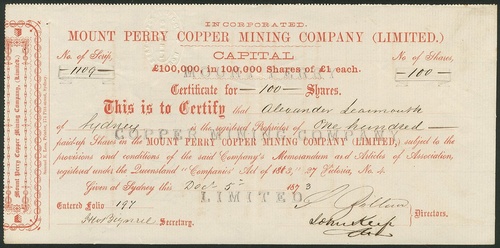 INCORPORATED.
MOUNT PERRY COPPER MINING COMPANY (LIMITED.)
No. of Scrip, CAPITAL No. of Shares,
1109 £100,000, in 100,000 Shares of £1 each. 100
Certificate for 100 Shares.
This is to Certify that Alexander Learmonth
of Sydney is the registered Proprietor of One hundred
paid-up Shares in the MOUNT PERRY COPPER MINING COMPANY (LIMITED), subject to the
provisions and conditions of the said Company's Memorandum and Articles of Association,
registered under the Queensland "Companies' Act of 1863," 27 Victoria, No. 4.
Given at Sydney this Dec. 5th 1873
LIMITED
Entered Folio 197
Secretary. Directors.
Mount Perry Copper Mining Company (Limited).
COPPER MINING COMPANY